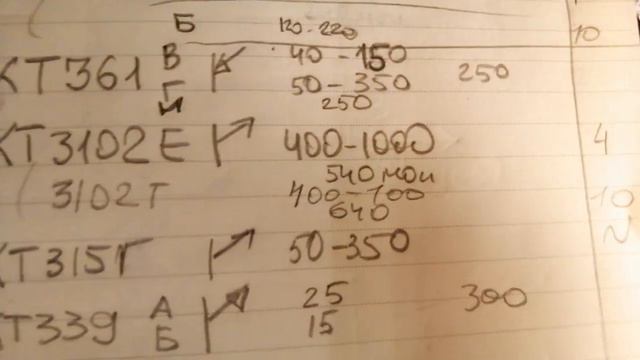 Б 120-220 10
КТ361 В 40-150
Г 50-350 250
И 250
КТ3102Е 400-1000 4
540 мои
3102Г 400-100 10
640
КТ315Г 50-350
КТ339 А 25 300
Б 15